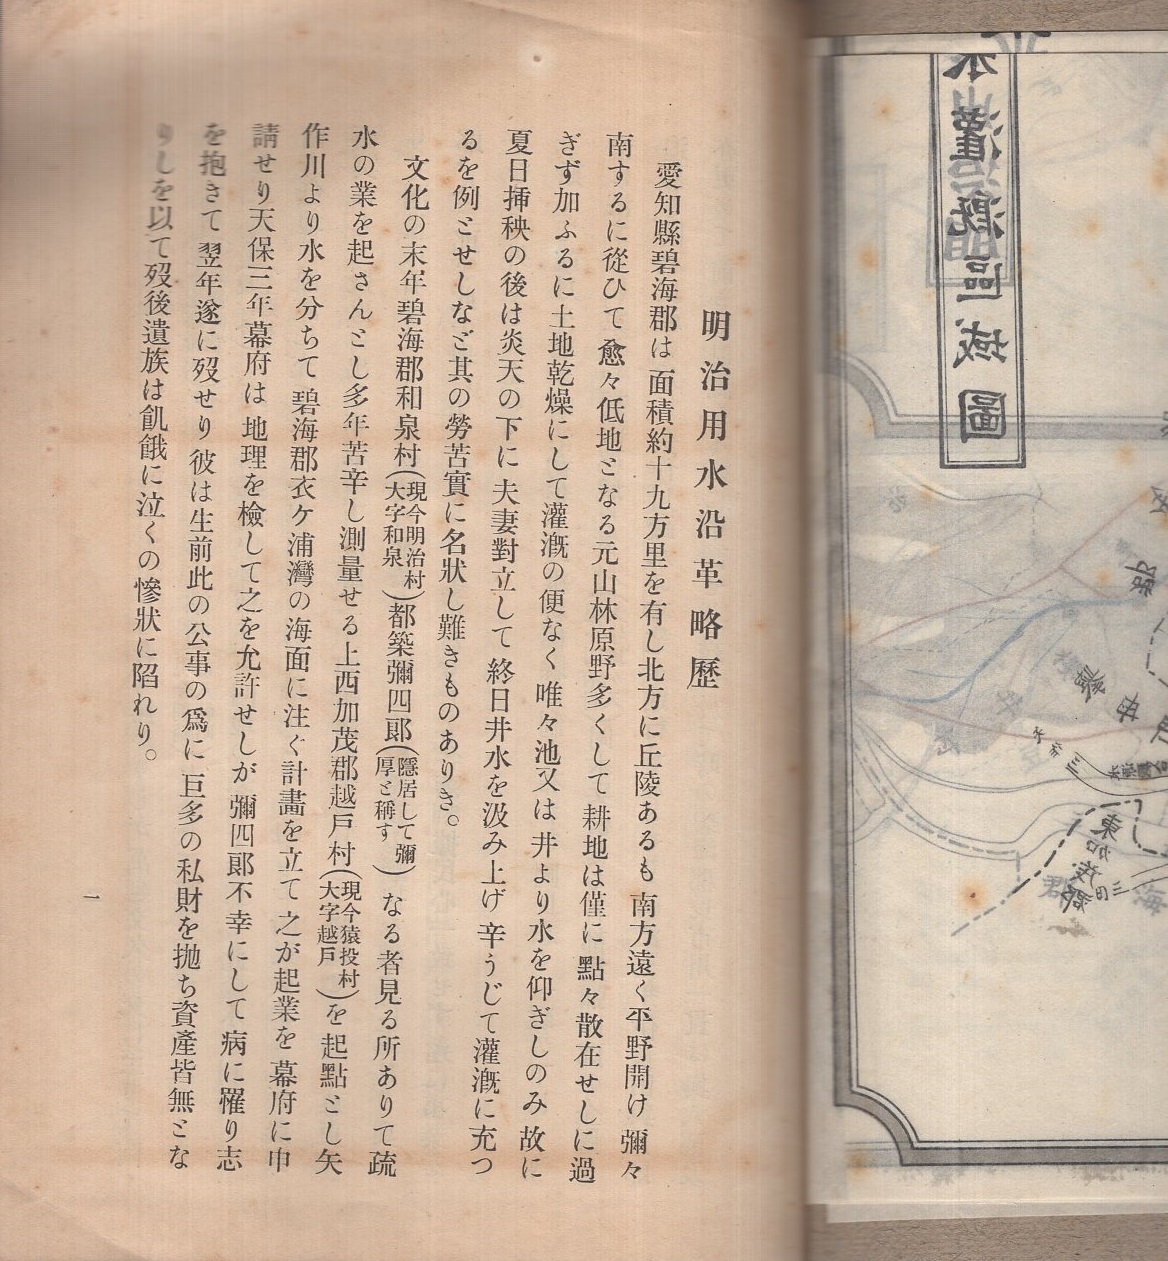 明治用水沿革略歷
愛知縣碧海郡は面積約十九方里を有し北方に丘陵あるも南方遠く平野開け彌々
南するに從ひて愈々低地となる元山林原野多くして耕地は僅に點々散在せしに過
ぎず加ふるに土地乾燥にして灌漑の便なく唯々池又は井より水を仰ぎしのみ故に
夏日挿秧の後は炎天の下に夫妻對立して終日井水を汲み上げ辛うじて灌漑に充つ
るを例とせしなど其の勞苦實に名狀し難きものありき。
文化の末年碧海郡和泉村(現今明治村大字和泉)都築彌四郞(隱居して彌厚と稱す)なる者見る所ありて疏
水の業を起さんとし多年苦辛し測量せる上西加茂郡越戶村(現今猿投村大字越戶)を起點とし矢
作川より水を分ちて碧海郡衣ケ浦灣の海面に注ぐ計畫を立て之が起業を幕府に申
請せり天保三年幕府は地理を檢して之を允許せしが彌四郞不幸にして病に罹り志
を抱きて翌年遂に歿せり彼は生前此の公事の爲に巨多の私財を抛ち資產皆無とな
りしを以て歿後遺族は飢餓に泣くの慘狀に陷れり。
一
水灌漑區域圖
東加茂郡